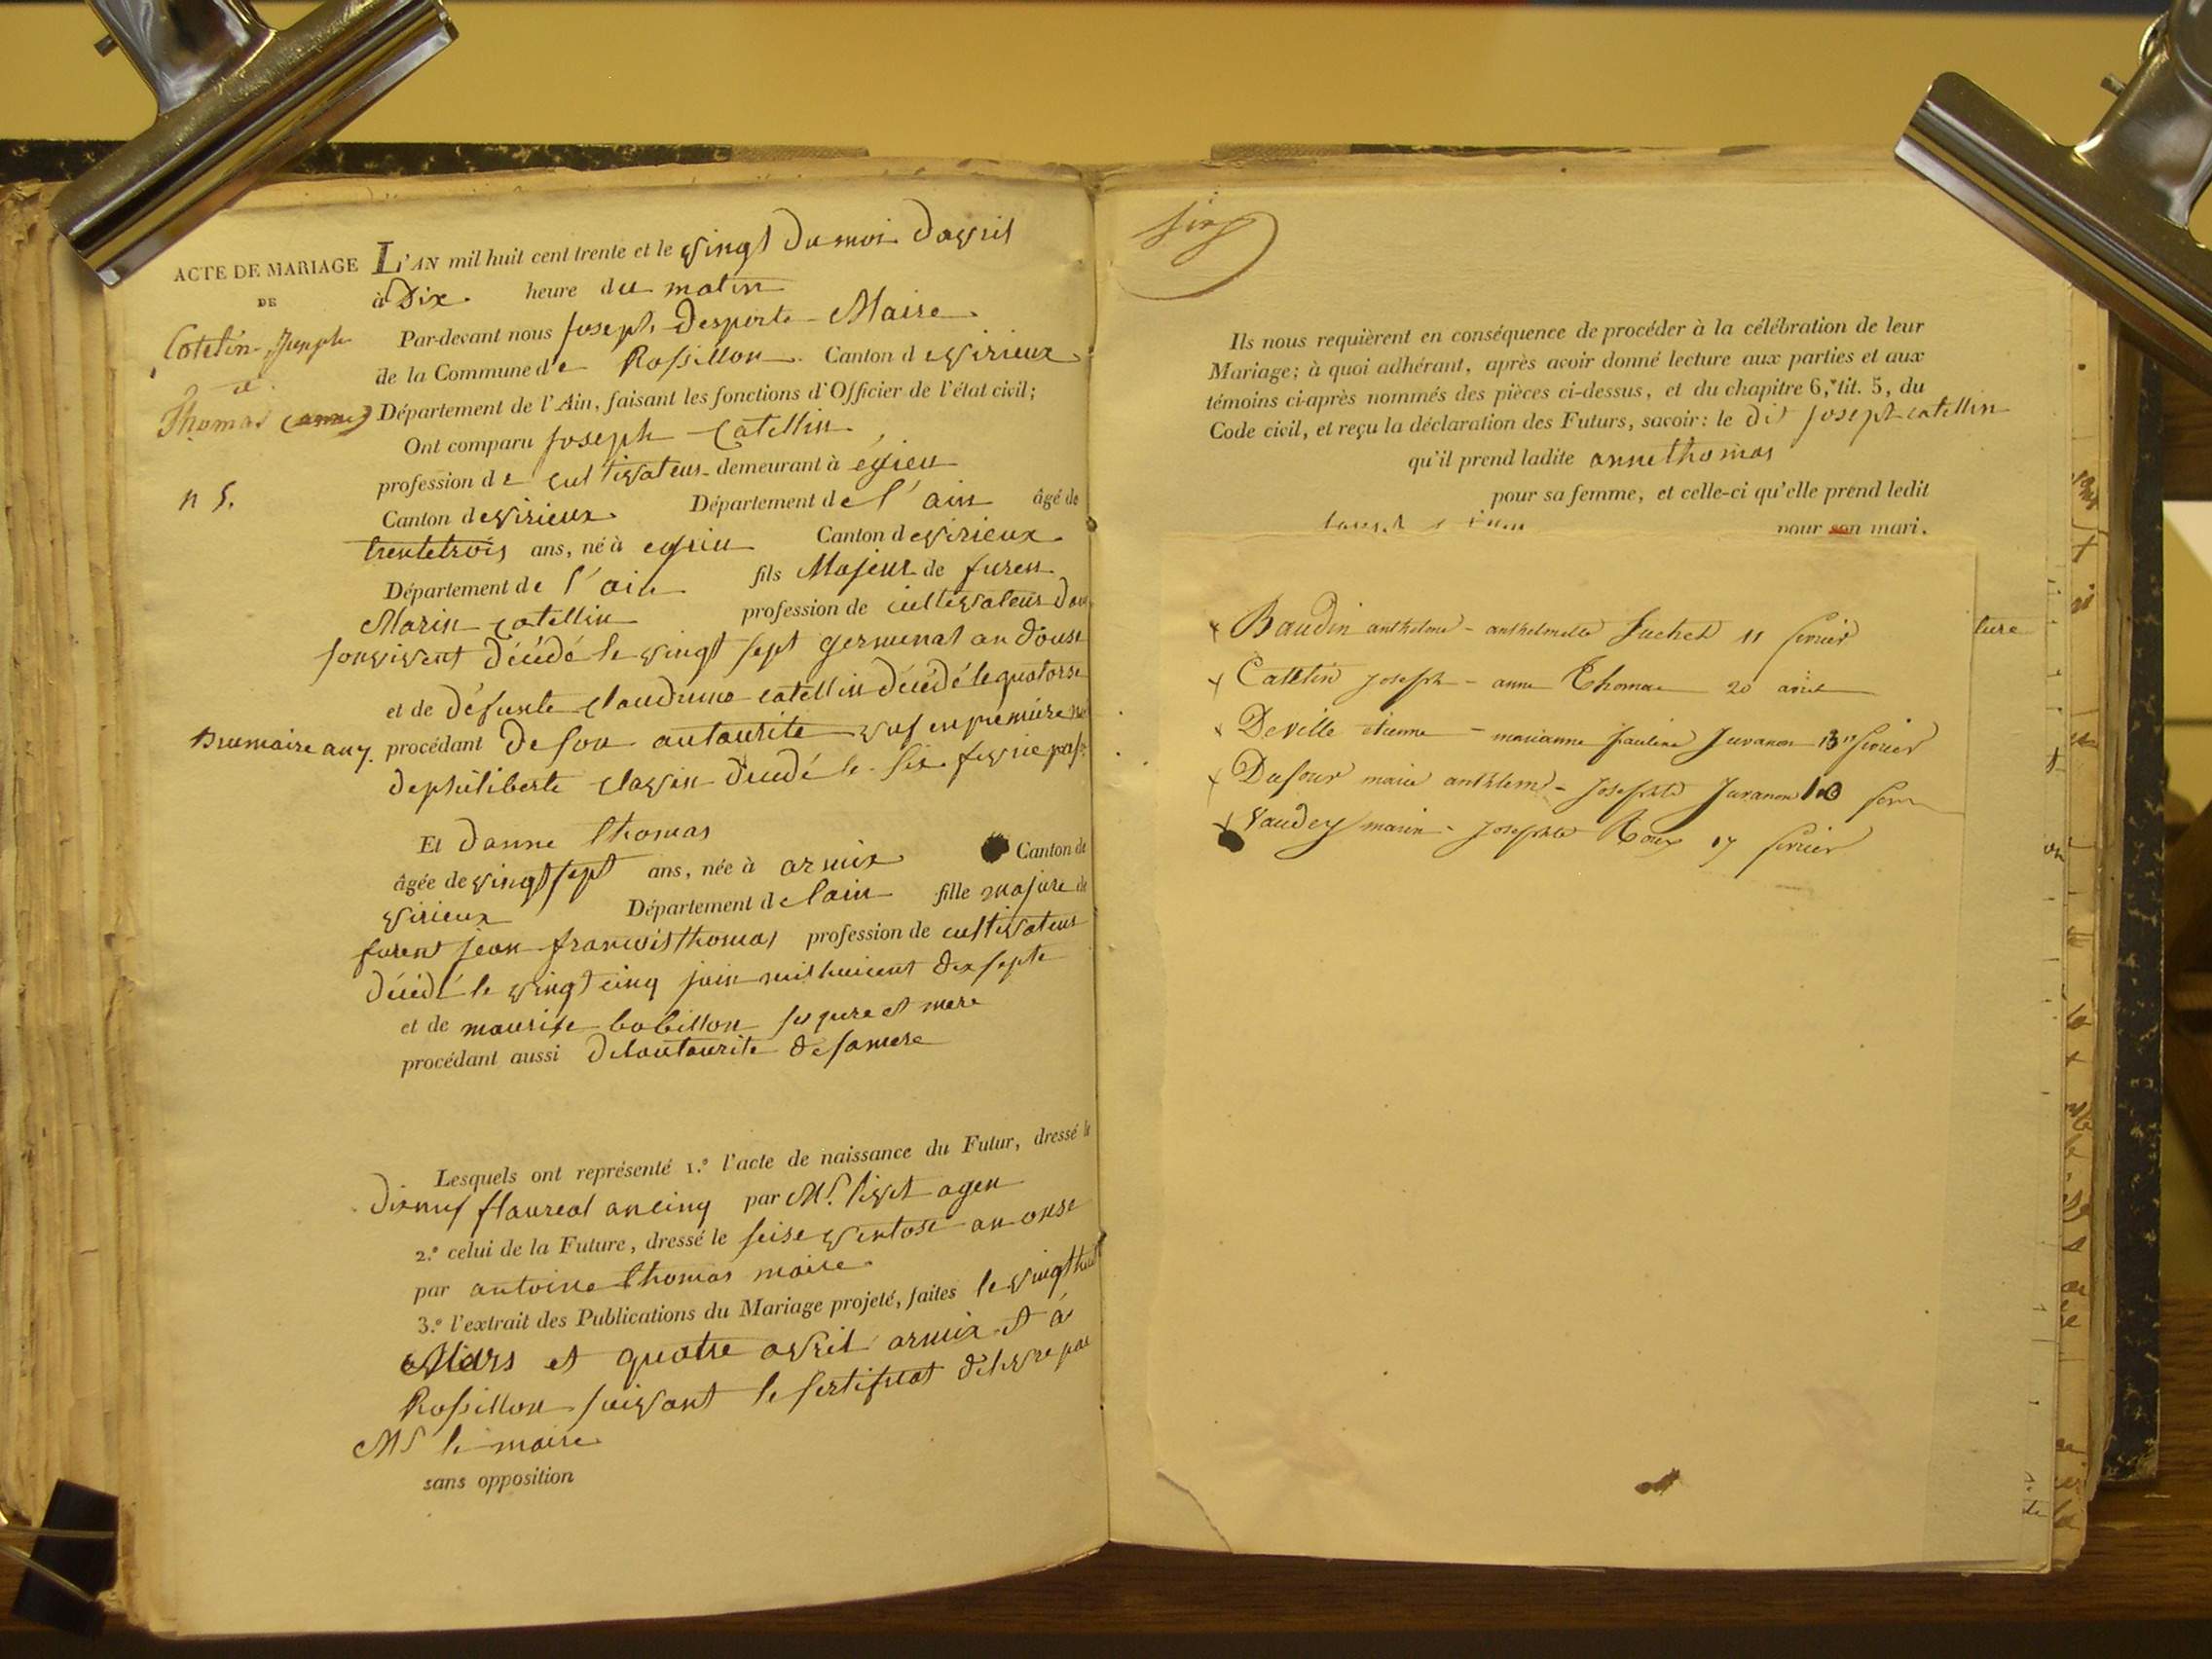 ACTE DE MARIAGE
DE
Cotelin Joseph
et
Thomas (anne)
n 5.
L'AN mil huit cent trente et le vingt du moi davril
à Dix heure du matin
Par-devant nous joseph Desporte Maire
de la Commune de Rossillon Canton de virieux
Département de l'Ain, faisant les fonctions d'Officier de l'état civil;
Ont comparu joseph Catellin
profession de cultivateur demeurant à
Canton de virieux Département de l'ain âgé de
trentetrois ans, né à Canton de virieux
Département de l'ain fils Majeur de furen
Marin catellin profession de cultivateur
sonvivent décédé le vingt sept germinal an douse
et de défunte claudine catellin décédé le quatorse
Brumaire an 7. procédant de son autaurite vuf en premiere
de philiberte clavin décédé le six
Et danne thomas
âgée de vingt sept ans, née à armix Canton de
virieux Département de lain fille majure de
furent jean francois thomas profession de cultivateur
décédé le vingt cinq juin mil huicent dix septe
et de maurise bobillon ses pere et mere
procédant aussi de lautaurite de samere
Lesquels ont représenté 1.º l'acte de naissance du Futur, dressé le
dixneuf flaureal an cinq par Mr. livet agen
2.º celui de la Future, dressé le seise ventose an onse
par antoine thomas maire
3.º l'extrait des Publications du Mariage projeté, faites le vingt huit
Mars et quatre avril armix et à
Rossillon suivant le sertificat delivre par
Mr le maire
sans opposition
Ils nous requièrent en conséquence de procéder à la célébration de leur
Mariage; à quoi adhérant, après avoir donné lecture aux parties et aux
témoins ci-après nommés des pièces ci-dessus, et du chapitre 6, tit. 5, du
Code civil, et reçu la déclaration des Futurs, savoir: le dit joseph catellin
qu'il prend ladite anne thomas
pour sa femme, et celle-ci qu'elle prend ledit
pour son mari.
x Baudin anthelme - anthelmette Juchet 11 fevrier
x Catelin Joseph - anne Thomas 20 avril
x Deville etienne - marianne pauline Juvanon 13 fevrier
x Dufour marie anthelme - Josephte Juvanon 10 fevr
x Vaudey marin - Josephte Roux 17 fevrier
ture